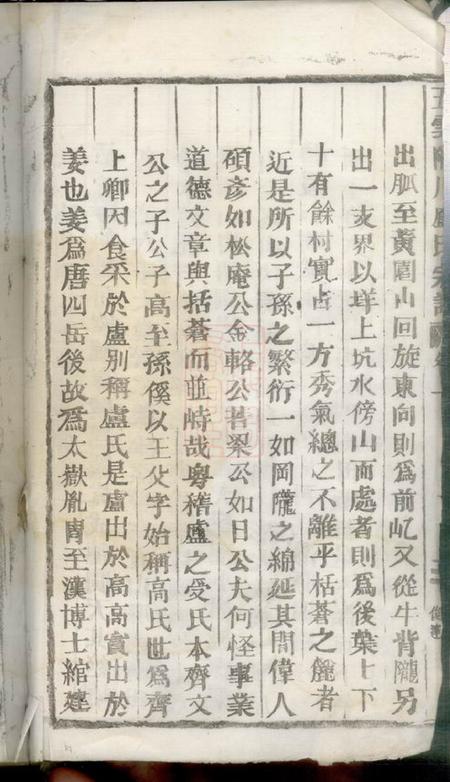 出脈至黃園山回旋東向則爲前屹又從牛背隴另
出一支界以垟上坑水傍山而處者則爲後葉上下
十有餘村實占一方秀氣總之不離乎栝蒼之麓者
近是所以子孫之繁衍一如岡隴之綿延其間偉人
碩彥如松庵公金輅公若梁公如日公夫何怪事業
道德文章與括蒼而並峙哉粵稽盧之受氏本齊文
公之子公子高至孫傒以王父字始稱高氏世爲齊
上卿因食采於盧別稱盧氏是盧出於高高實出於
姜也姜爲唐四岳後故爲太嶽胤胄至漢博士綰建